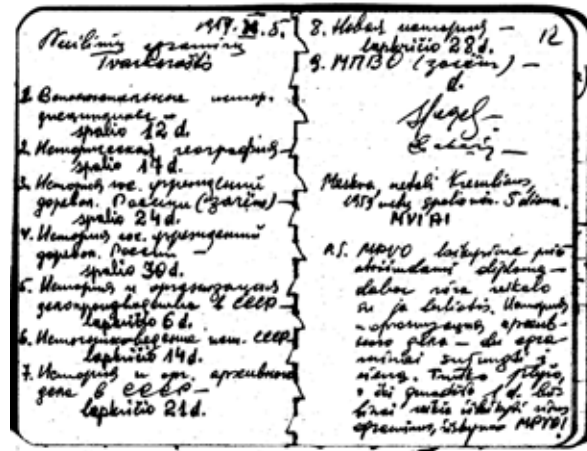 1959. X. 5.
egzaminų
Tvarkaraštis
1. Вспомогательные истор.
дисциплины —
spalio 12 d.
2. Историческая география —
spalio 17 d.
3. История гос. учреждений
дорев. России (зачёт) —
spalio 24 d.
4. История гос. учреждений
дорев. России —
spalio 30 d.
5. История и организация
делопроизводства в СССР —
lapkričio 6 d.
6. Источниковедение ист. СССР —
lapkričio 14 d.
7. История и орг. архивного
дела в СССР —
lapkričio 21 d.
12
8. Новая история —
lapkričio 28 d.
9. МПВО (зачёт) —
d.
Maskva, netoli Kremliaus,
1959 metų spalio mėn. 5 diena.
MVIAI
P.S. MPVO laikysime prieš
diplomą —
dabar nėra reikalo
su ja История
и организация архив-
ного дела — du egza-
minai į
vieną.
o iki gruodžio 1 d.
reikia išlaikyti visus
egzaminus, išskyrus MPVO!